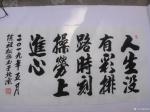 人生没
有彩排
路时刻
操劳上
进心
二〇一九年五月